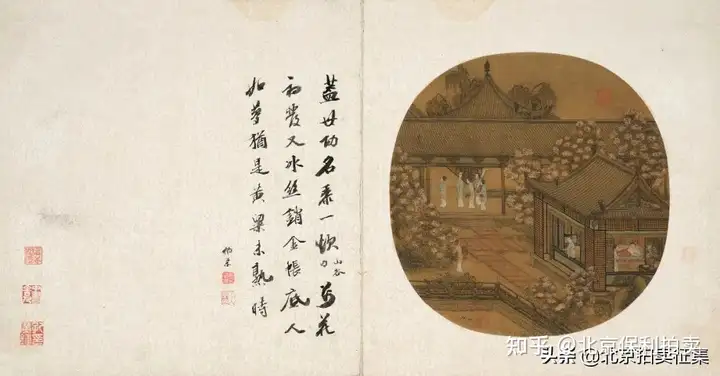 蓋世功名黍一炊 山谷 萬花
初發又冰絲銷金帳底人
如夢猶是黃粱未熟時
知乎 @北京保利拍卖
头条 @北京拍卖征集